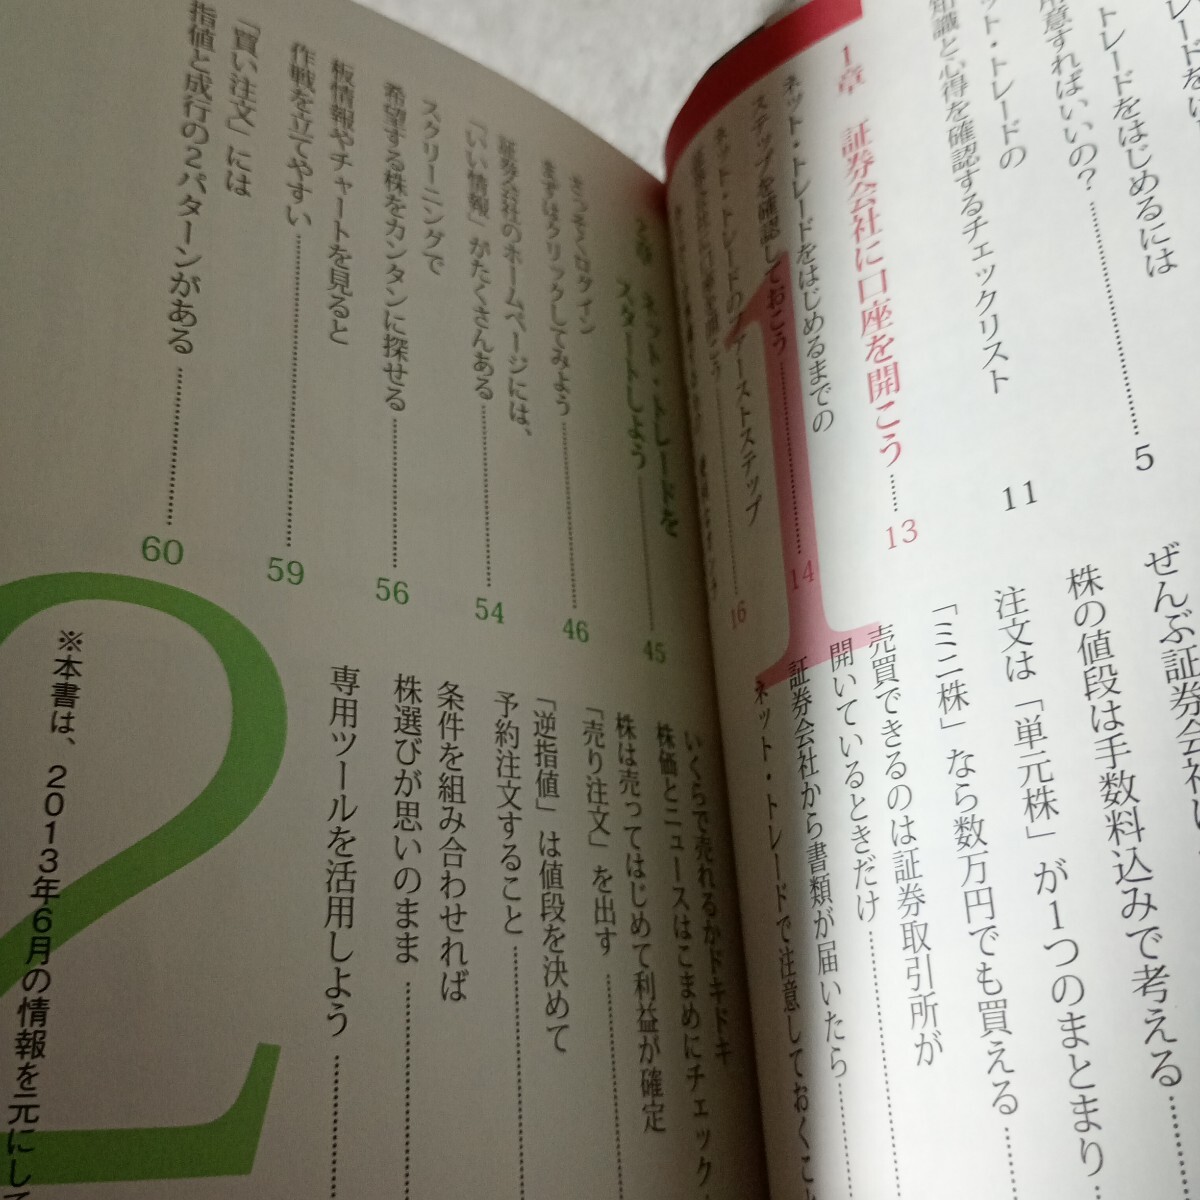 レードをは
トレードをはじめるには
用意すればいいの?…… 5
ット・トレードの
知識と心得を確認するチェックリスト 11
1章 証券会社に口座を開こう…… 13
1
ネット・トレードをはじめるまでの
ステップを確認しておこう…… 14
ネット・トレードのファーストステップ
証券会社に口座を開こう…… 16
ぜんぶ証券会社
株の値段は手数料込みで考える……
注文は「単元株」が1つのまとまり…
「ミニ株」なら数万円でも買える……
売買できるのは証券取引所が
開いているときだけ……
証券会社から書類が届いたら……
ネット・トレードで注意しておくこ
2章 ネット・トレードを
スタートしよう…… 45
さっそくログイン
まずはクリックしてみよう…… 46
証券会社のホームページには、
「いい情報」がたくさんある…… 54
スクリーニングで
希望する株をカンタンに探せる…… 56
板情報やチャートを見ると
作戦を立てやすい…… 59
「買い注文」には
指値と成行の2パターンがある…… 60
2
いくらで売れるかドキドキ
株価とニュースはこまめにチェック…
株は売ってはじめて利益が確定
「売り注文」を出す……
「逆指値」は値段を決めて
予約注文すること……
条件を組み合わせれば
株選びが思いのまま……
専用ツールを活用しよう……
※本書は、2013年6月の情報を元にして